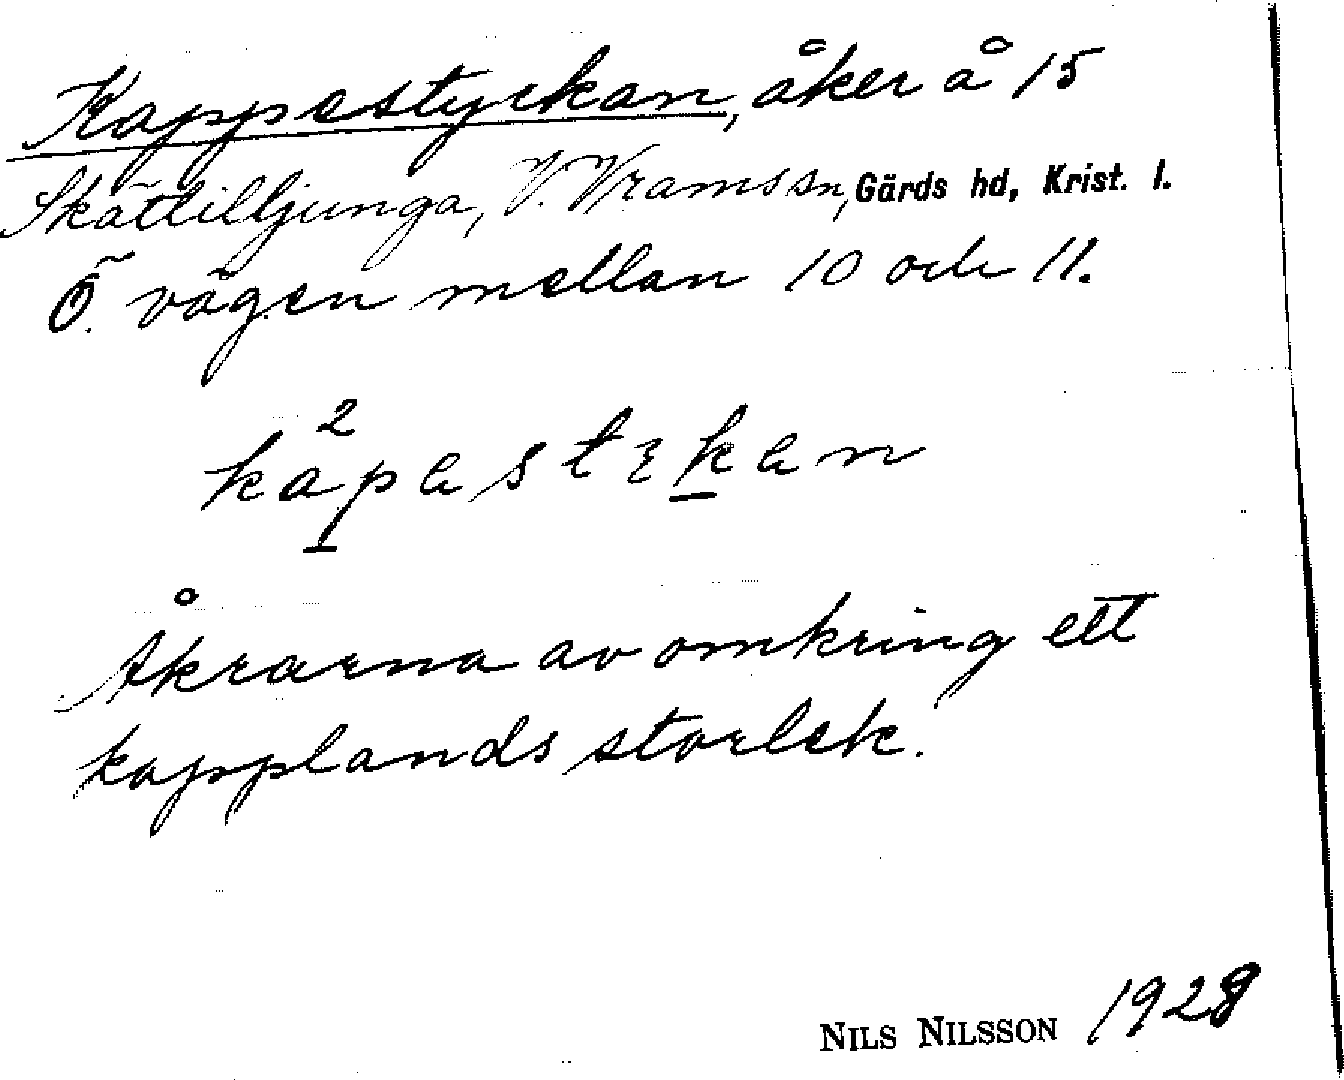 Kappestyckan, åker å 15
Skättilljunga, V. Vrams sn, Gärds hd, Krist. l.
Ö. vägen mellan 10 och 11.
Åkrarna av omkring ett
kapplands storlek.
NILS NILSSON 1928